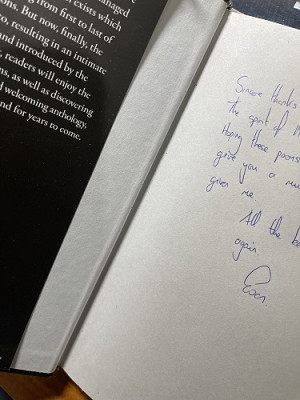 anaged
exists which
from first to last of
ons. But now, finally, the
to, resulting in an intimate
and introduced by the
, readers will enjoy the
ns, as well as discovering
d welcoming anthology,
nd for years to come.
Sincere thanks
the spirit of
Hoping these poems
give you a
given me.
All the be
again